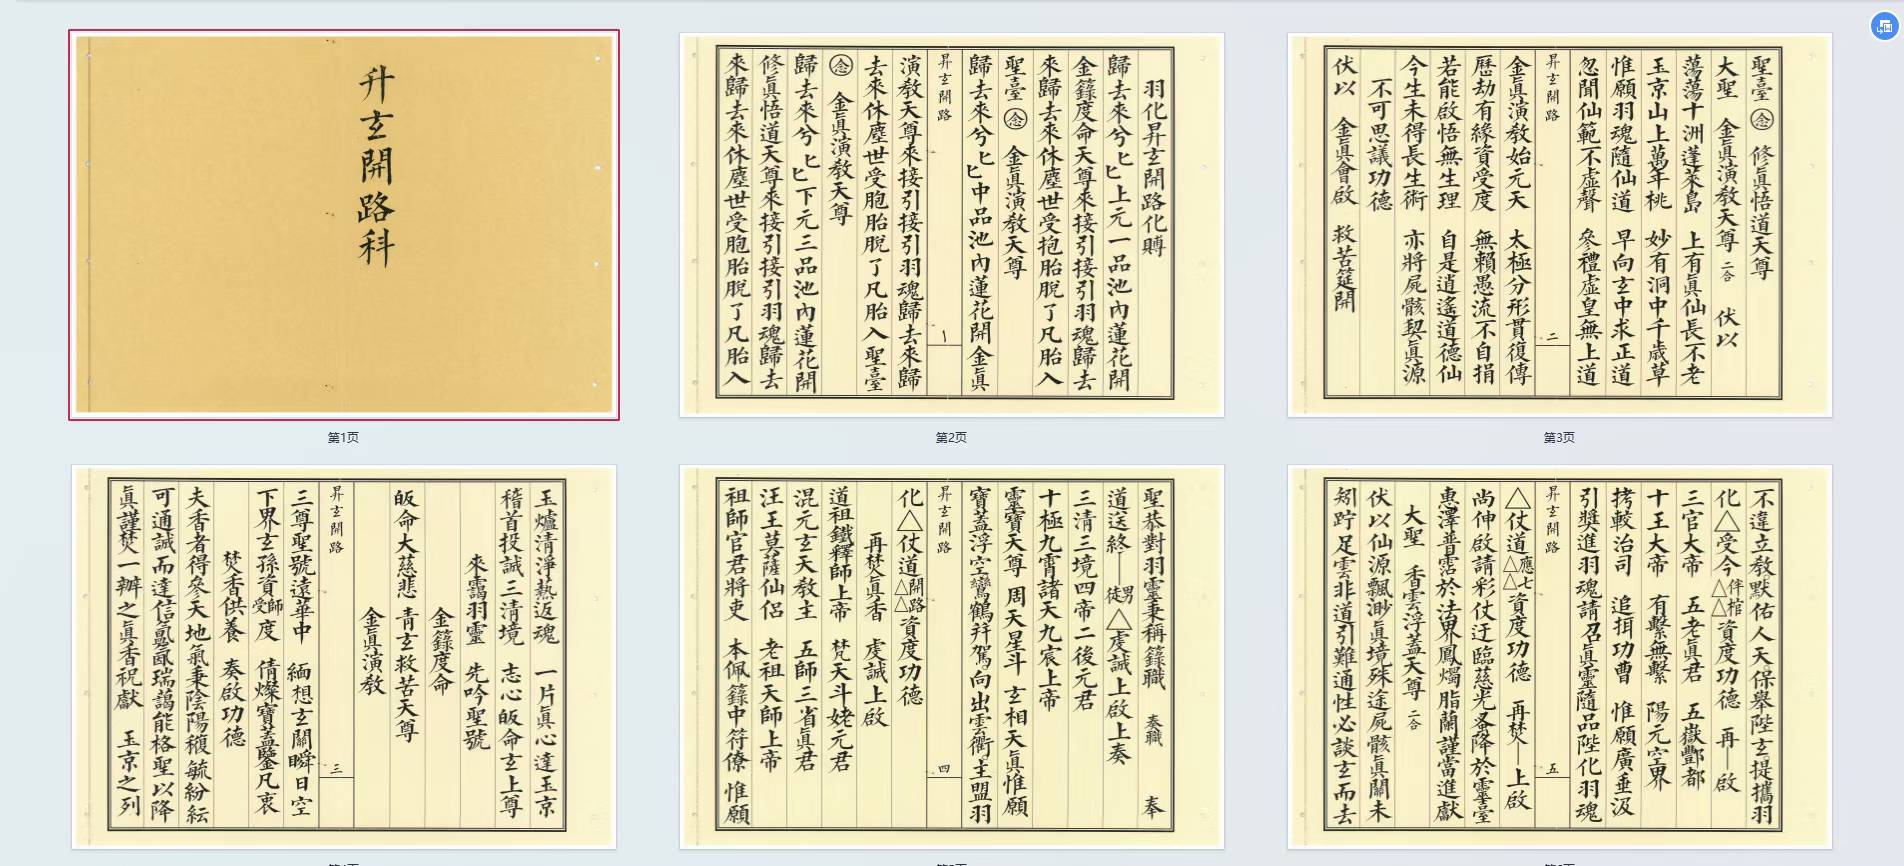 升玄開路科
第1页
羽化昇玄開路化賻
歸去來兮匕匕上元一品池內蓮花開
金籙度命天尊來接引接引羽魂歸去
來歸去來休塵世受抱胎脫了凡胎入
聖臺㊀念 金眞演教天尊
歸去來兮匕匕中品池內蓮花開金眞
昇玄開路
一
演教天尊來接引接引羽魂歸去來歸
去來休塵世受胞胎脫了凡胎入聖臺
念 金眞演教天尊
歸去來兮匕匕下元三品池內蓮花開
修眞悟道天尊來接引接引羽魂歸去
來歸去來休塵世受胞胎脫了凡胎入
第2页
聖臺 念 修眞悟道天尊
大聖 金眞演教天尊 二合 伏以
蕩蕩十洲蓬萊島 上有眞仙長不老
玉京山上萬年桃 妙有洞中千歲草
惟願羽魂隨仙道 早向玄中求正道
忽聞仙範不虛聲 參禮虛皇無上道
昇玄開路
二
金眞演教始元天 太極分形貫復傳
歷劫有緣資受度 無賴愚流不自捐
若能啟悟無生理 自是逍遙道德仙
今生未得長生術 亦將屍骸契眞源
不可思議功德
伏以 金眞會啟 救苦筵開
第3页
玉爐清淨熱返魂 一片眞心達玉京
稽首投誠三清境 志心皈命玄上尊
來靄羽靈 先吟聖號
金籙度命
皈命大慈悲 青玄救苦天尊
金眞演教
昇玄開路
三
三尊聖號遠華中 緬想玄關瞬日空
下界玄孫資受師度 倩燦寶蓋鑒凡衷
焚香供養 奏啟功德
夫香者得參天地氣秉陰陽馥毓紛紜
可通誠而達信氤氳瑞藹能格聖以降
眞謹焚一瓣之眞香祝獻 玉京之列
聖恭對羽靈秉稱籙職 奏職 奉
道送終一男徒△虔誠上啟上奏
三清三境四帝二後元君
十極九霄諸天九宸上帝
靈寶天尊 周天星斗 玄相天眞惟願
寶蓋浮空鸞鶴幷駕向出雲衢主盟羽
昇玄開路
四
化△仗道開路△△資度功德
再焚眞香 虔誠上啟
道祖鐵釋師上帝 梵天斗姥元君
混元玄天教主 五師三省眞君
汪王莫薩仙侶 老祖天師上帝
祖師官君將吏 本佩籙中符僚 惟願
不違立教默佑人天保舉陛玄提攜羽
化△受今伴棺△△資度功德 再一啟
三官大帝 五老眞君 五嶽酆都
十王大帝 有繫無繫 陽元空界
拷較治司 追揖功曹 惟願廣垂汲
引獎進羽魂請召眞靈隨品陛化羽魂
昇玄開路
五
△仗道應七△△資度功德 再焚一上啟
尚伸啟請彩仗迂臨慈光夅降於靈臺
惠澤普霑於法界鳳燭脂蘭謹當進獻
大聖 香雲浮蓋天尊 二合
伏以仙源飄渺眞境殊途屍骸眞關未
矧貯足雲非道引難通性必談玄而去